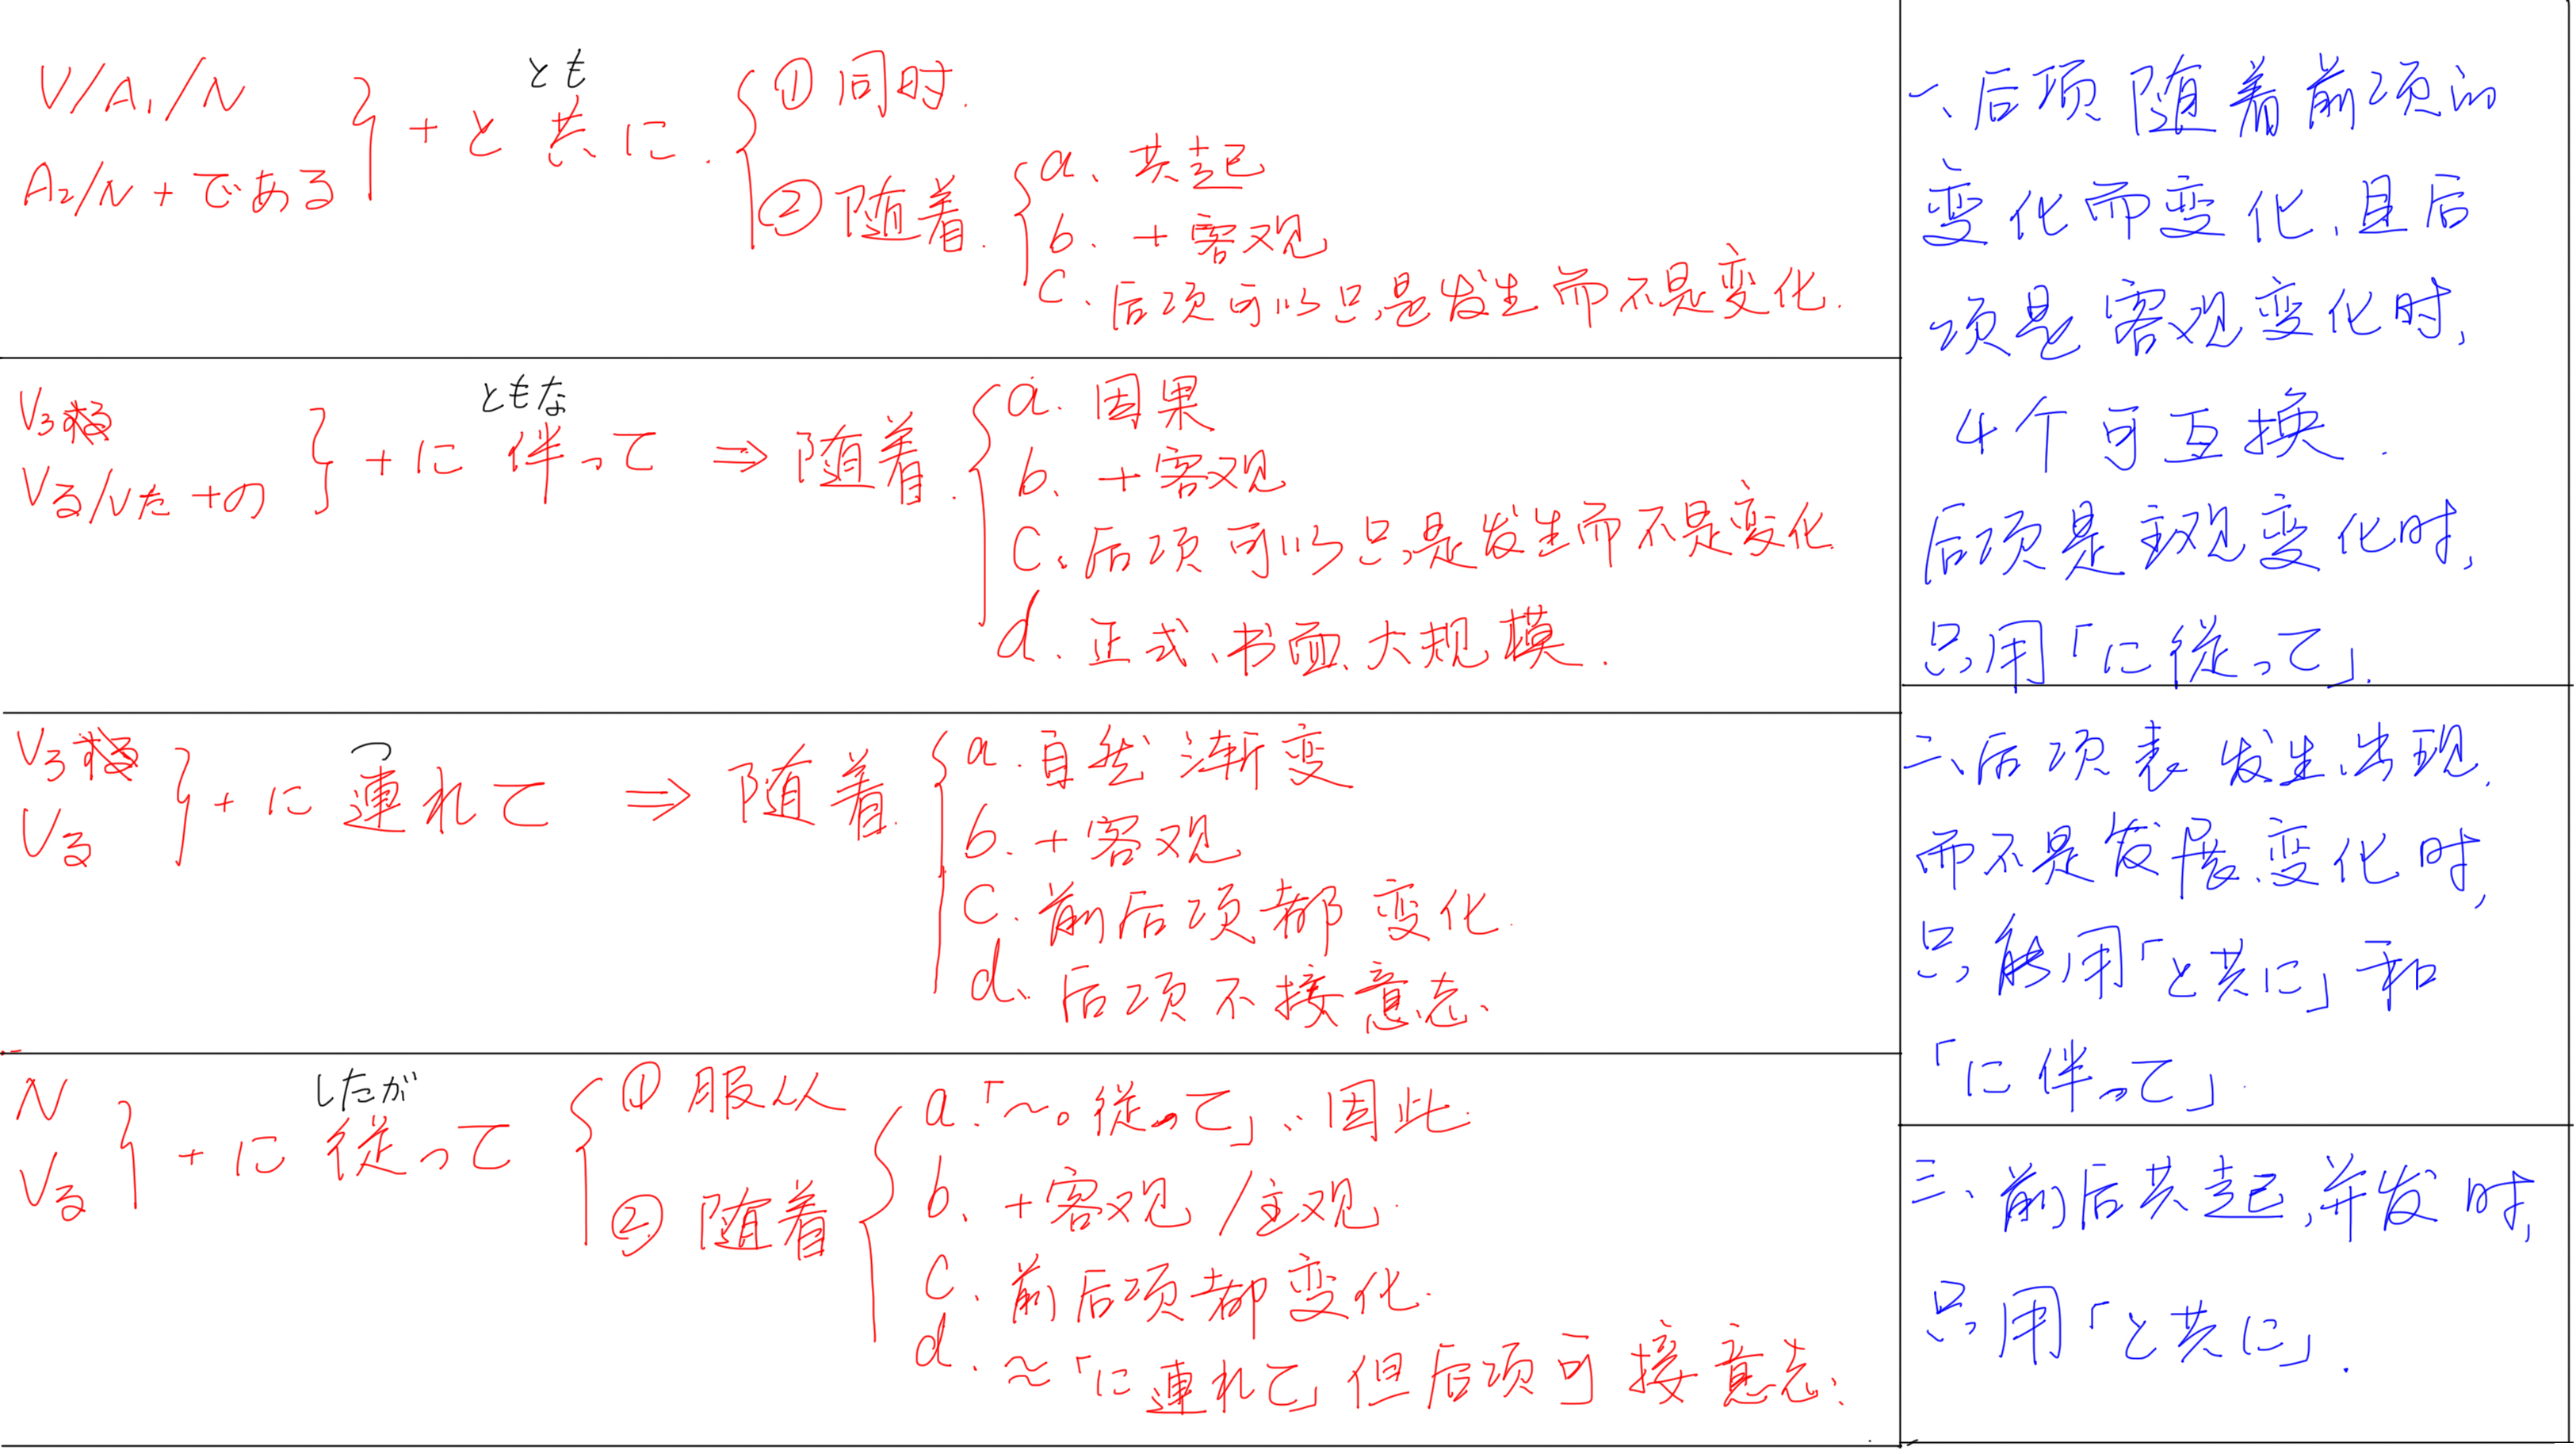 V/A₁/N
A₂/N+である
+と共に.
とも
①同时.
②随着.
a、共起
b.+客观
c、后项可以只是发生而不是变化.
V3
Vる/Vた+の
+に伴って ⇒ 随着.
ともな
a.因果
b、+客观
c、后项可以只是发生而不是变化.
d.正式、书面、大规模.
V3
Vる
+に連れて ⇒ 随着.
つ
a.自然渐变
b.+客观
c.前后项都变化.
d、后项不接意志、
N
Vる
+に従って
したが
①服从
②随着
a.「~。従って」、因此.
b、+客观/主观.
c.前后项都变化.
d.≈「に連れて」但后项可接意志、
一、后项随着前项的
变化而变化,且后
项是客观变化时,
4个可互换.
后项是主观变化时,
只用「に従って」.
二、后项表发生、出现.
而不是发展、变化时,
只能用「と共に」和
「に伴って」.
三、前后共起,并发时,
只用「と共に」.